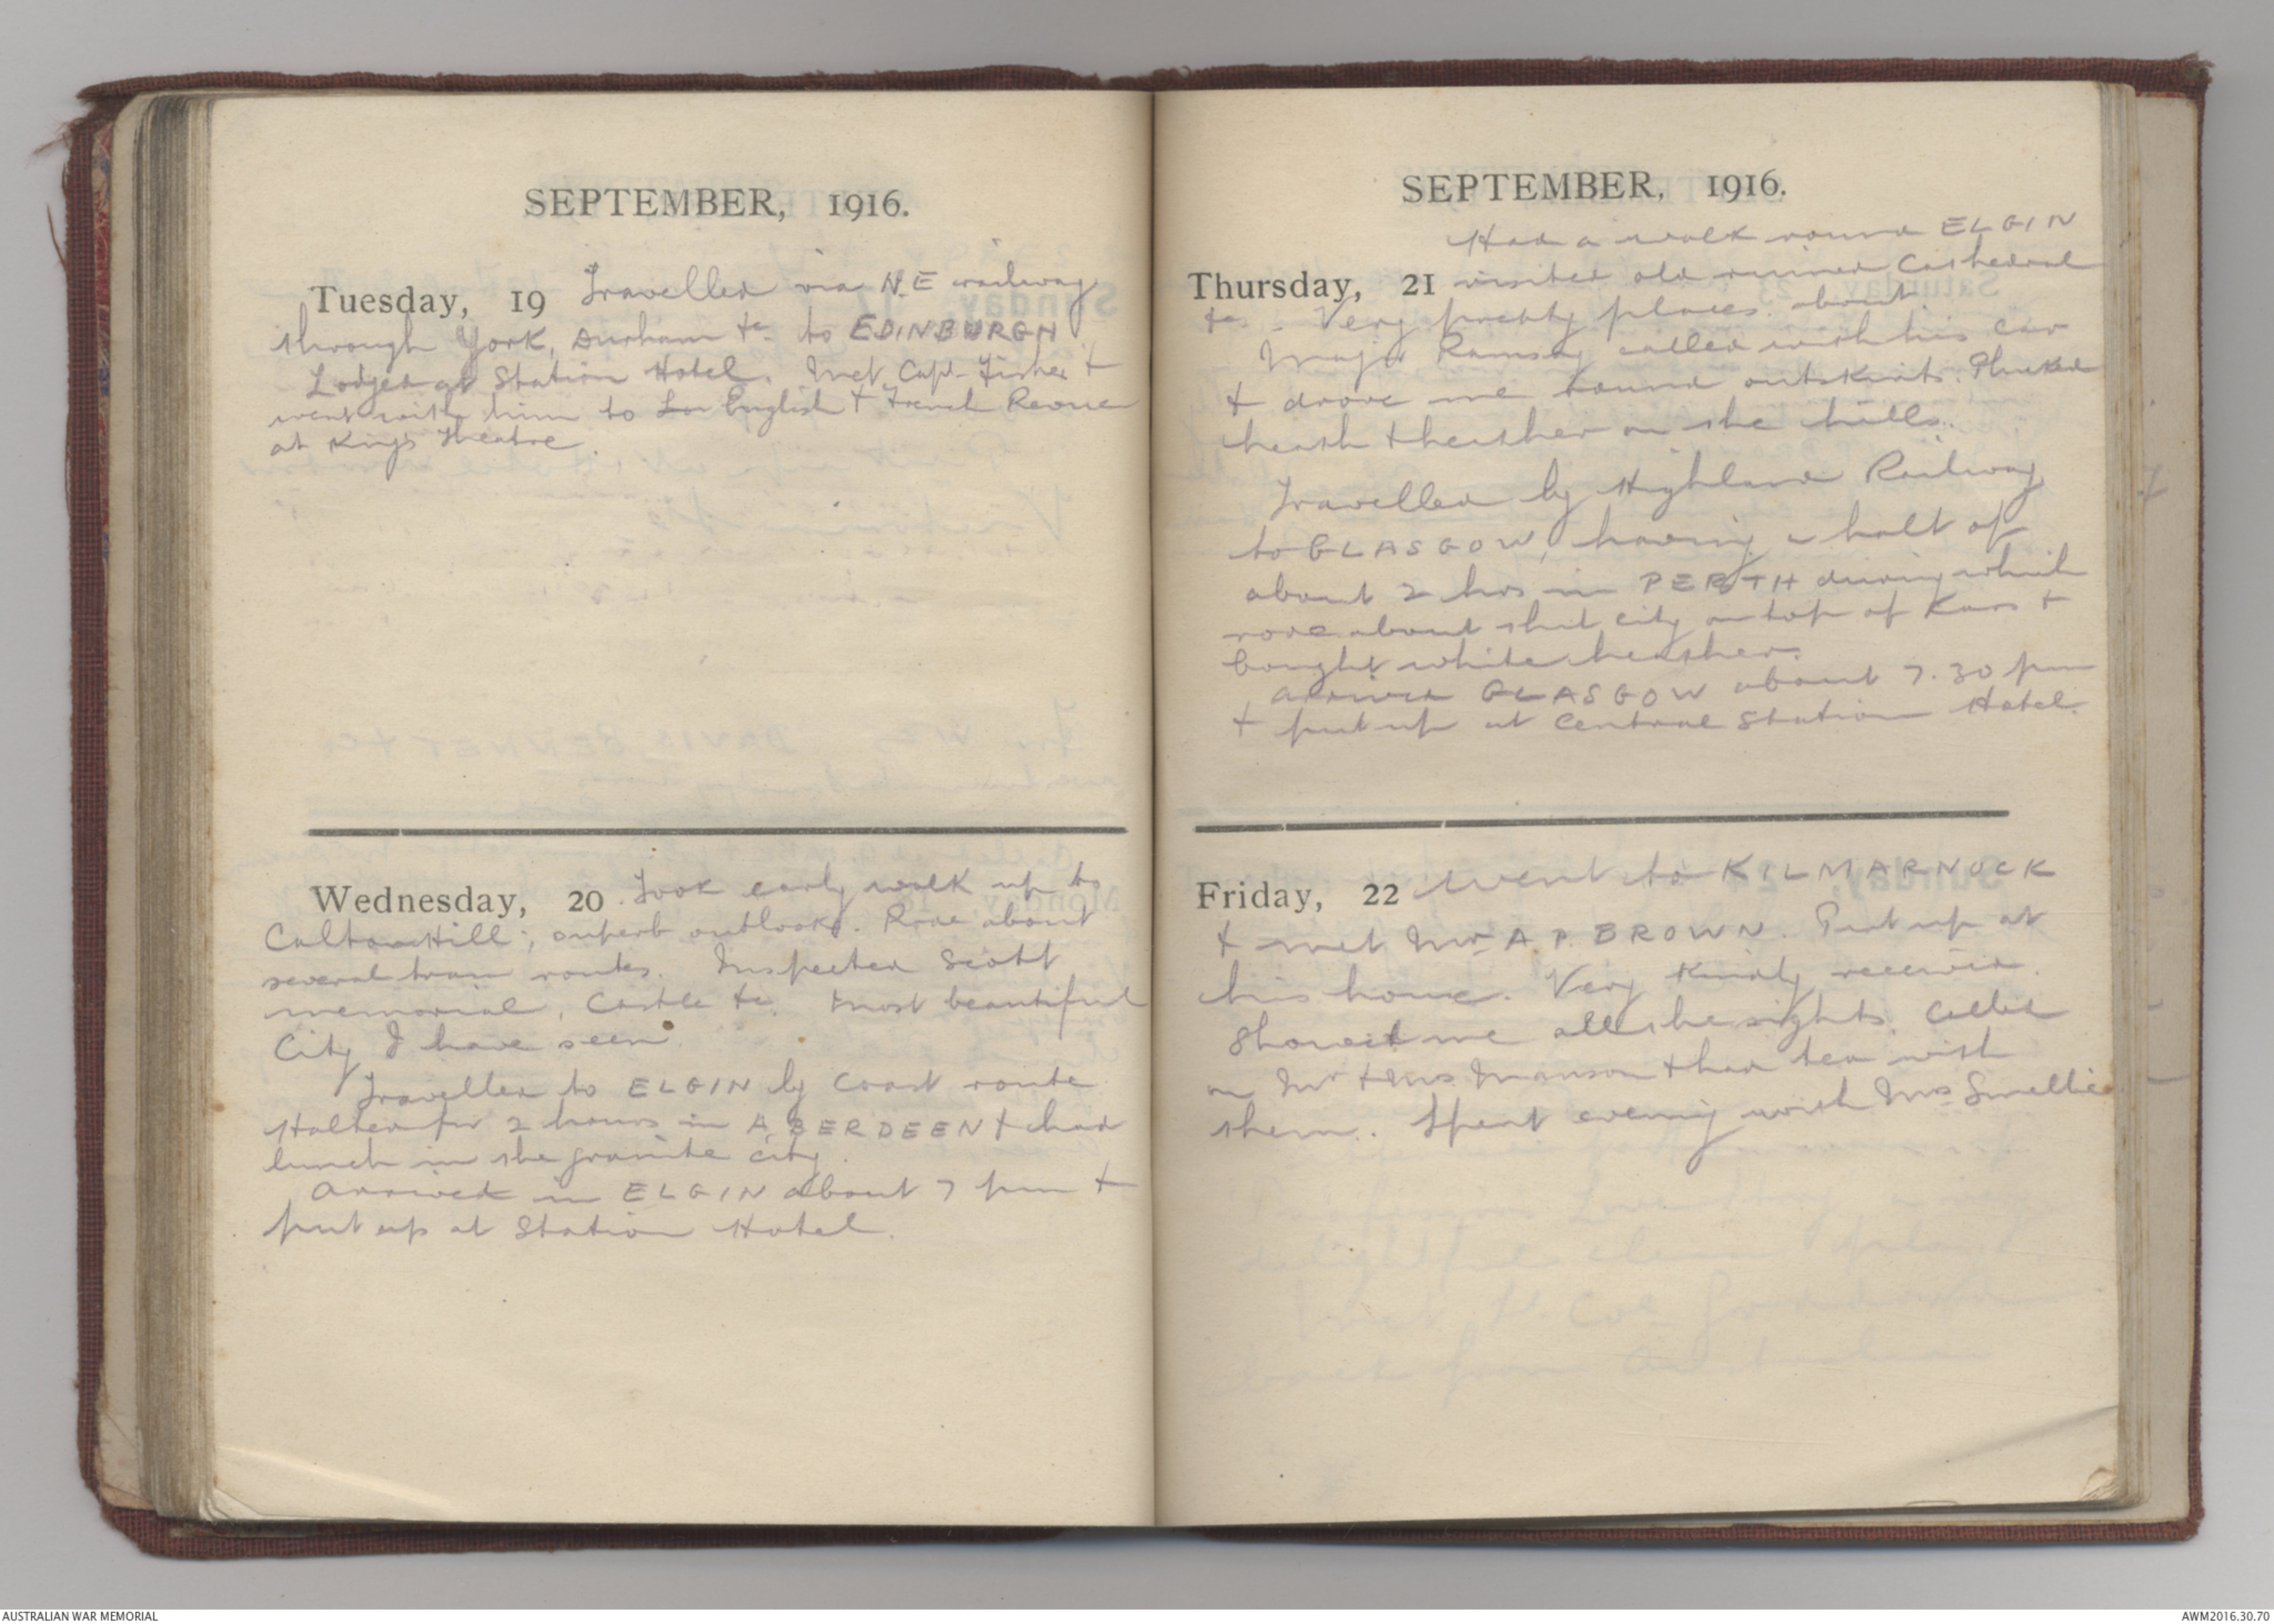 SEPTEMBER, 1916.
Tuesday, 19 Travelled via N.E railway
through York, Durham &c to EDINBURGH
Lodged at Station Hotel. Met Capt. Fisher &
went with him to  English & French Revue
at Kings Theatre.
Wednesday, 20. Took early walk up to
Calton Hill; superb outlook. Rode about
several tram routes. Inspected Scott
memorial, Castle &c. Most beautiful
City I have seen.
Travelled to ELGIN by Coast route
Halted for 2 hours in ABERDEEN & had
lunch in the granite city.
Arrived in ELGIN about 7 pm &
put up at Station Hotel.
SEPTEMBER, 1916.
Had a walk round ELGIN
Thursday, 21 visited old ruined Cathedral
&c - Very pretty places about.
Major Ramsay called with his car
& drove me round outskirts. Plucked
heath & heather on the hills.
Travelled by Highland Railway
to GLASGOW, having a halt of
about 2 hrs in PERTH during which
rode about that city on top of Kars &
bought white heather.
Arrived GLASGOW about 7.30 pm
& put up at Central Station Hotel.
Friday, 22 Went to KILMARNOCK
& met Mr A.P. BROWN. Put up at
his home. Very kindly received.
Showed me all the sights. Called
on Mr & Mrs Manson & had tea with
them. Spent evening with Mrs Smellie
AUSTRALIAN WAR MEMORIAL
AWM2016.30.70